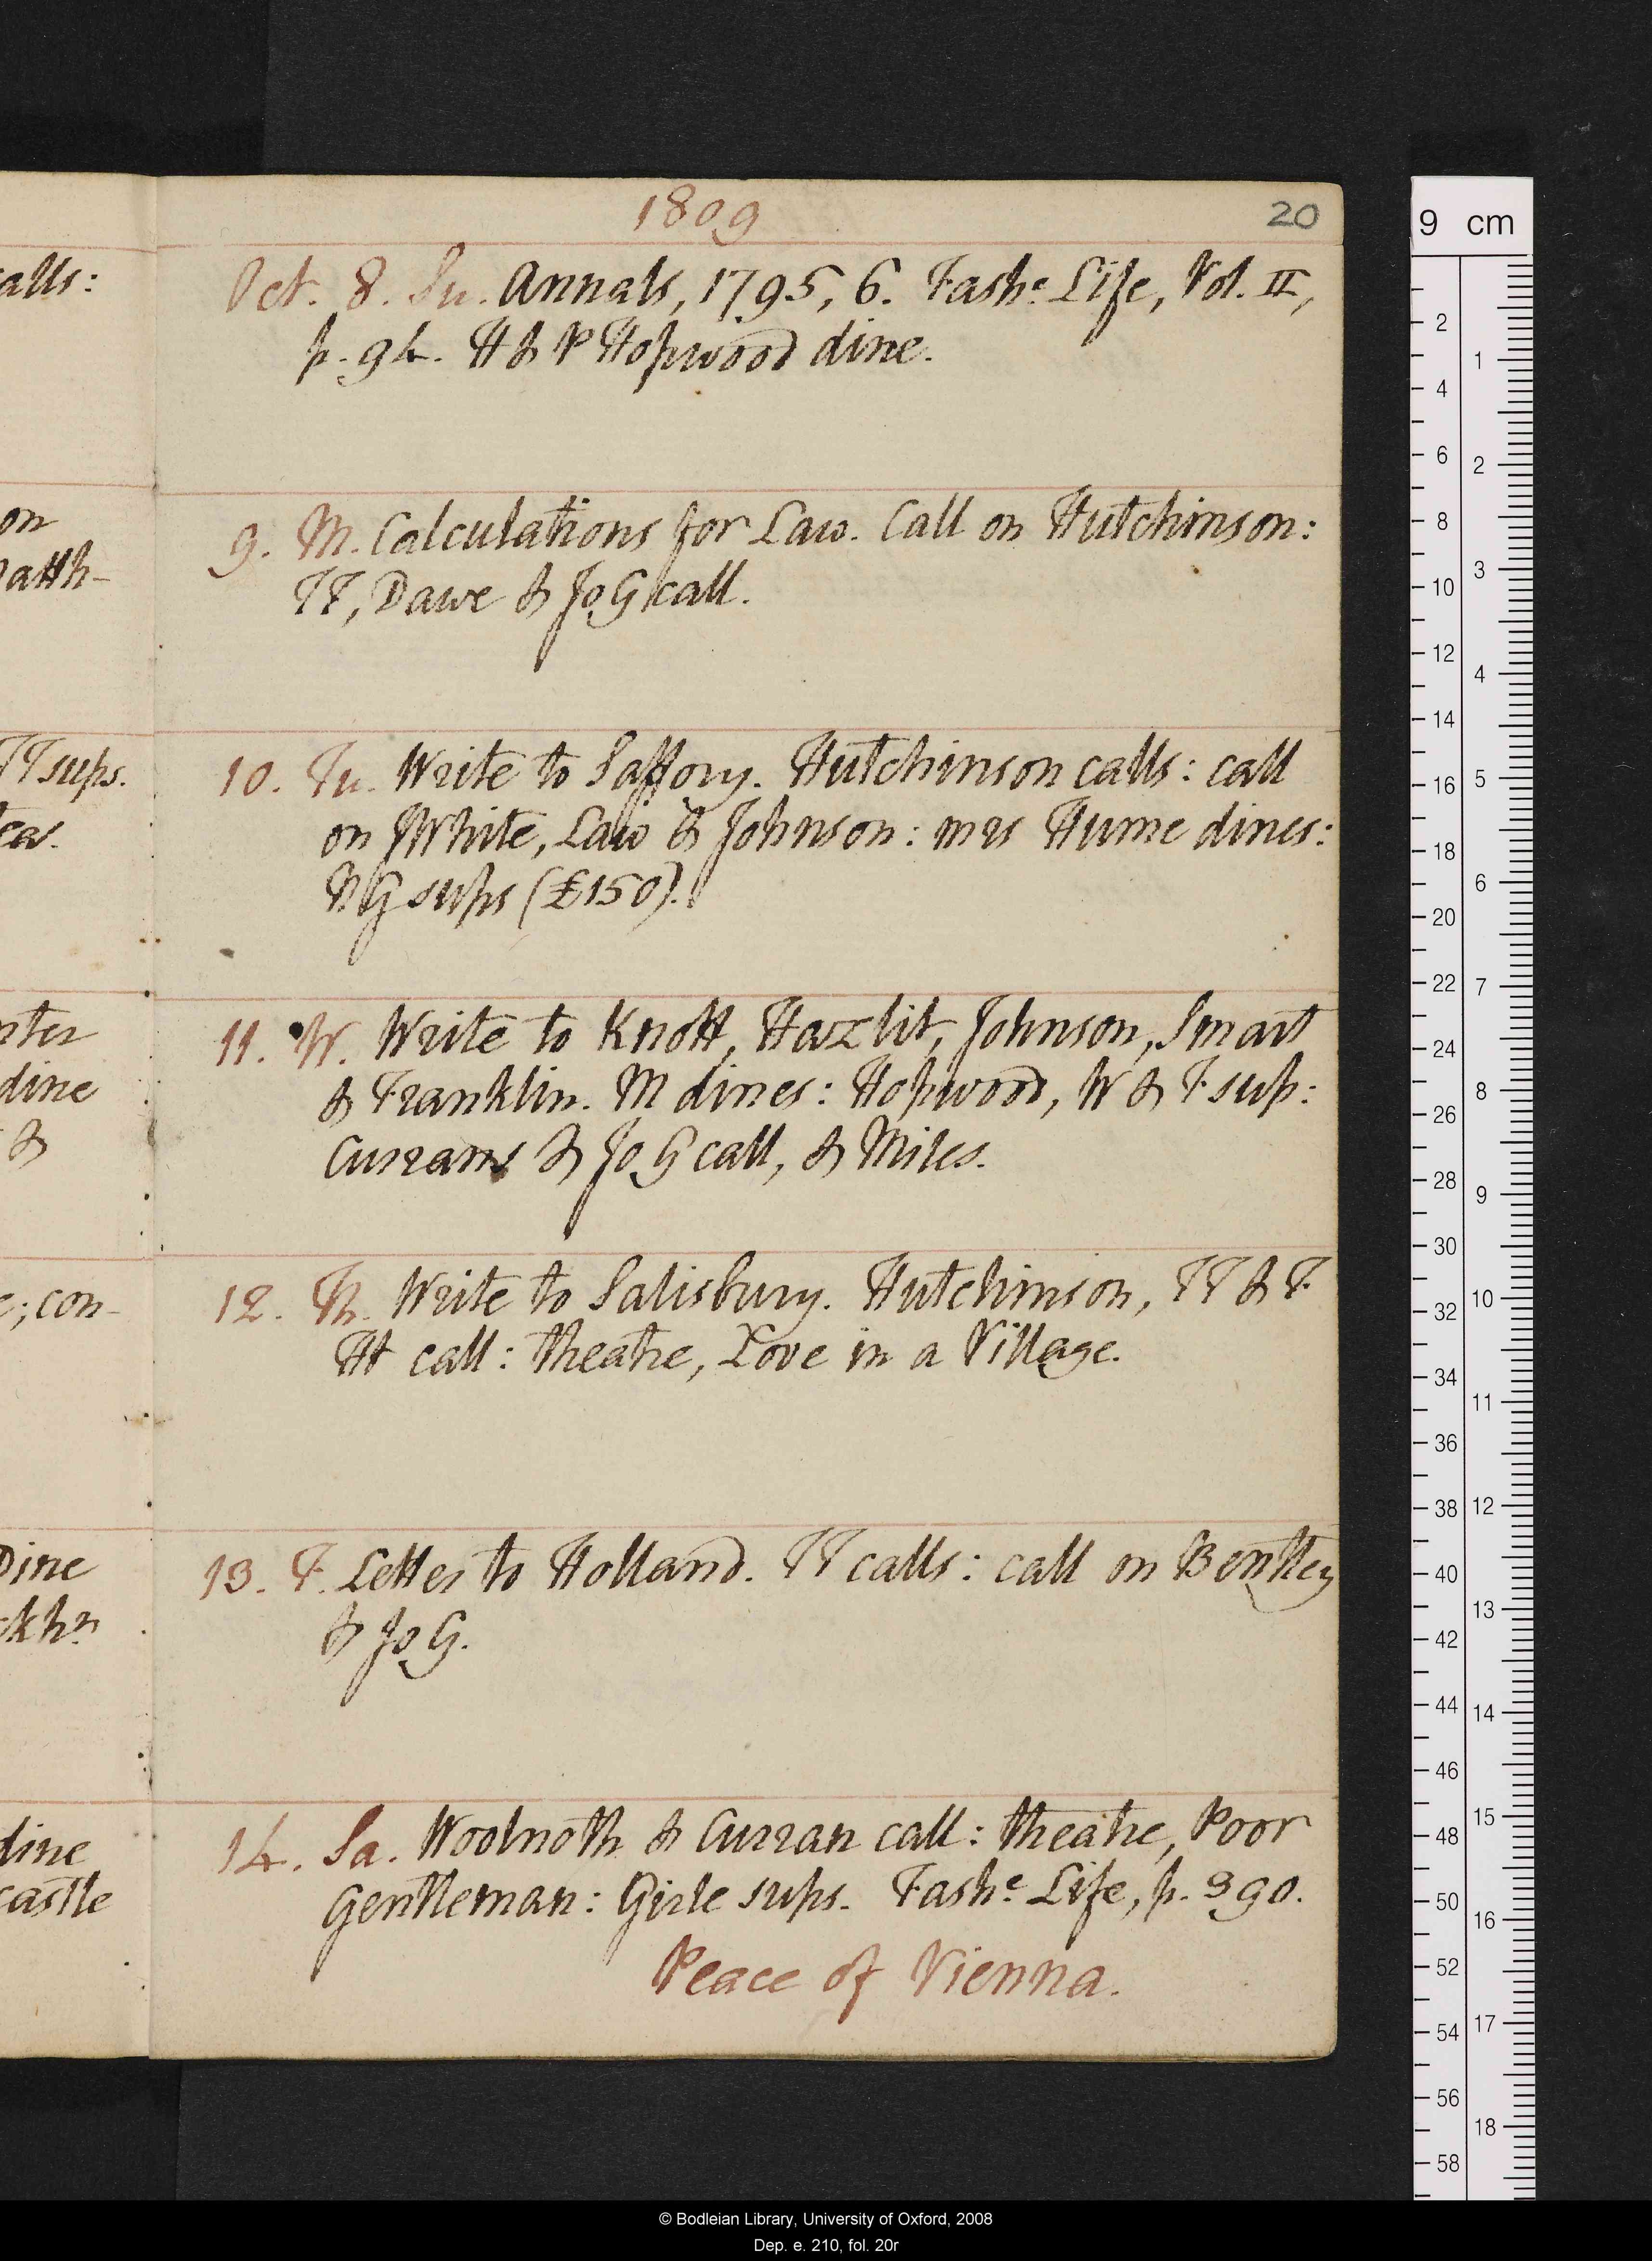 1809
20
Oct. 8. Su. Annals, 1795, 6. Fashe Life, Vol. II,
p. 94. H & P Hopwood dine.
9. M. Calculations for Law. Call on Hutchinson:
TT, Dawe & Jo G call.
10. Tu. Write to Saffory. Hutchinson calls: call
on JWhite, Law & Johnson: mrs Hume dines:
NG sups (£150).
11. W. Write to Knott, Hazlit, Johnson, Smart
& Franklin. M dines: Hopwood, W & F sup:
Currans & Jo G call, & Miles.
12. Th. Write to Salisbury. Hutchinson, TT & F.
Ht call: theatre, Love in a Village.
13. F. Letter to Holland. TT calls: call on Bentley
& Jo G.
14. Sa. Woolnoth & Curran call: theatre, Poor
Gentleman: Girle sups. Fashe Life, p. 390.
Peace of Vienna.
alls:
on
atth-
TT sups.
tea.
nter
dine
&
e; con-
Dine
ckhn
dine
castle
9 cm
2 4 6 8 10 12 14 16 18 20 22 24 26 28 30 32 34 36 38 40 42 44 46 48 50 52 54 56 58
1 2 3 4 5 6 7 8 9 10 11 12 13 14 15 16 17 18
© Bodleian Library, University of Oxford, 2008
Dep. e. 210, fol. 20r